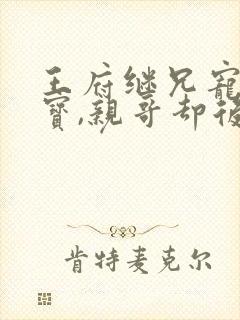 王府继兄宠
宝,亲哥却後
肯特麦克尔